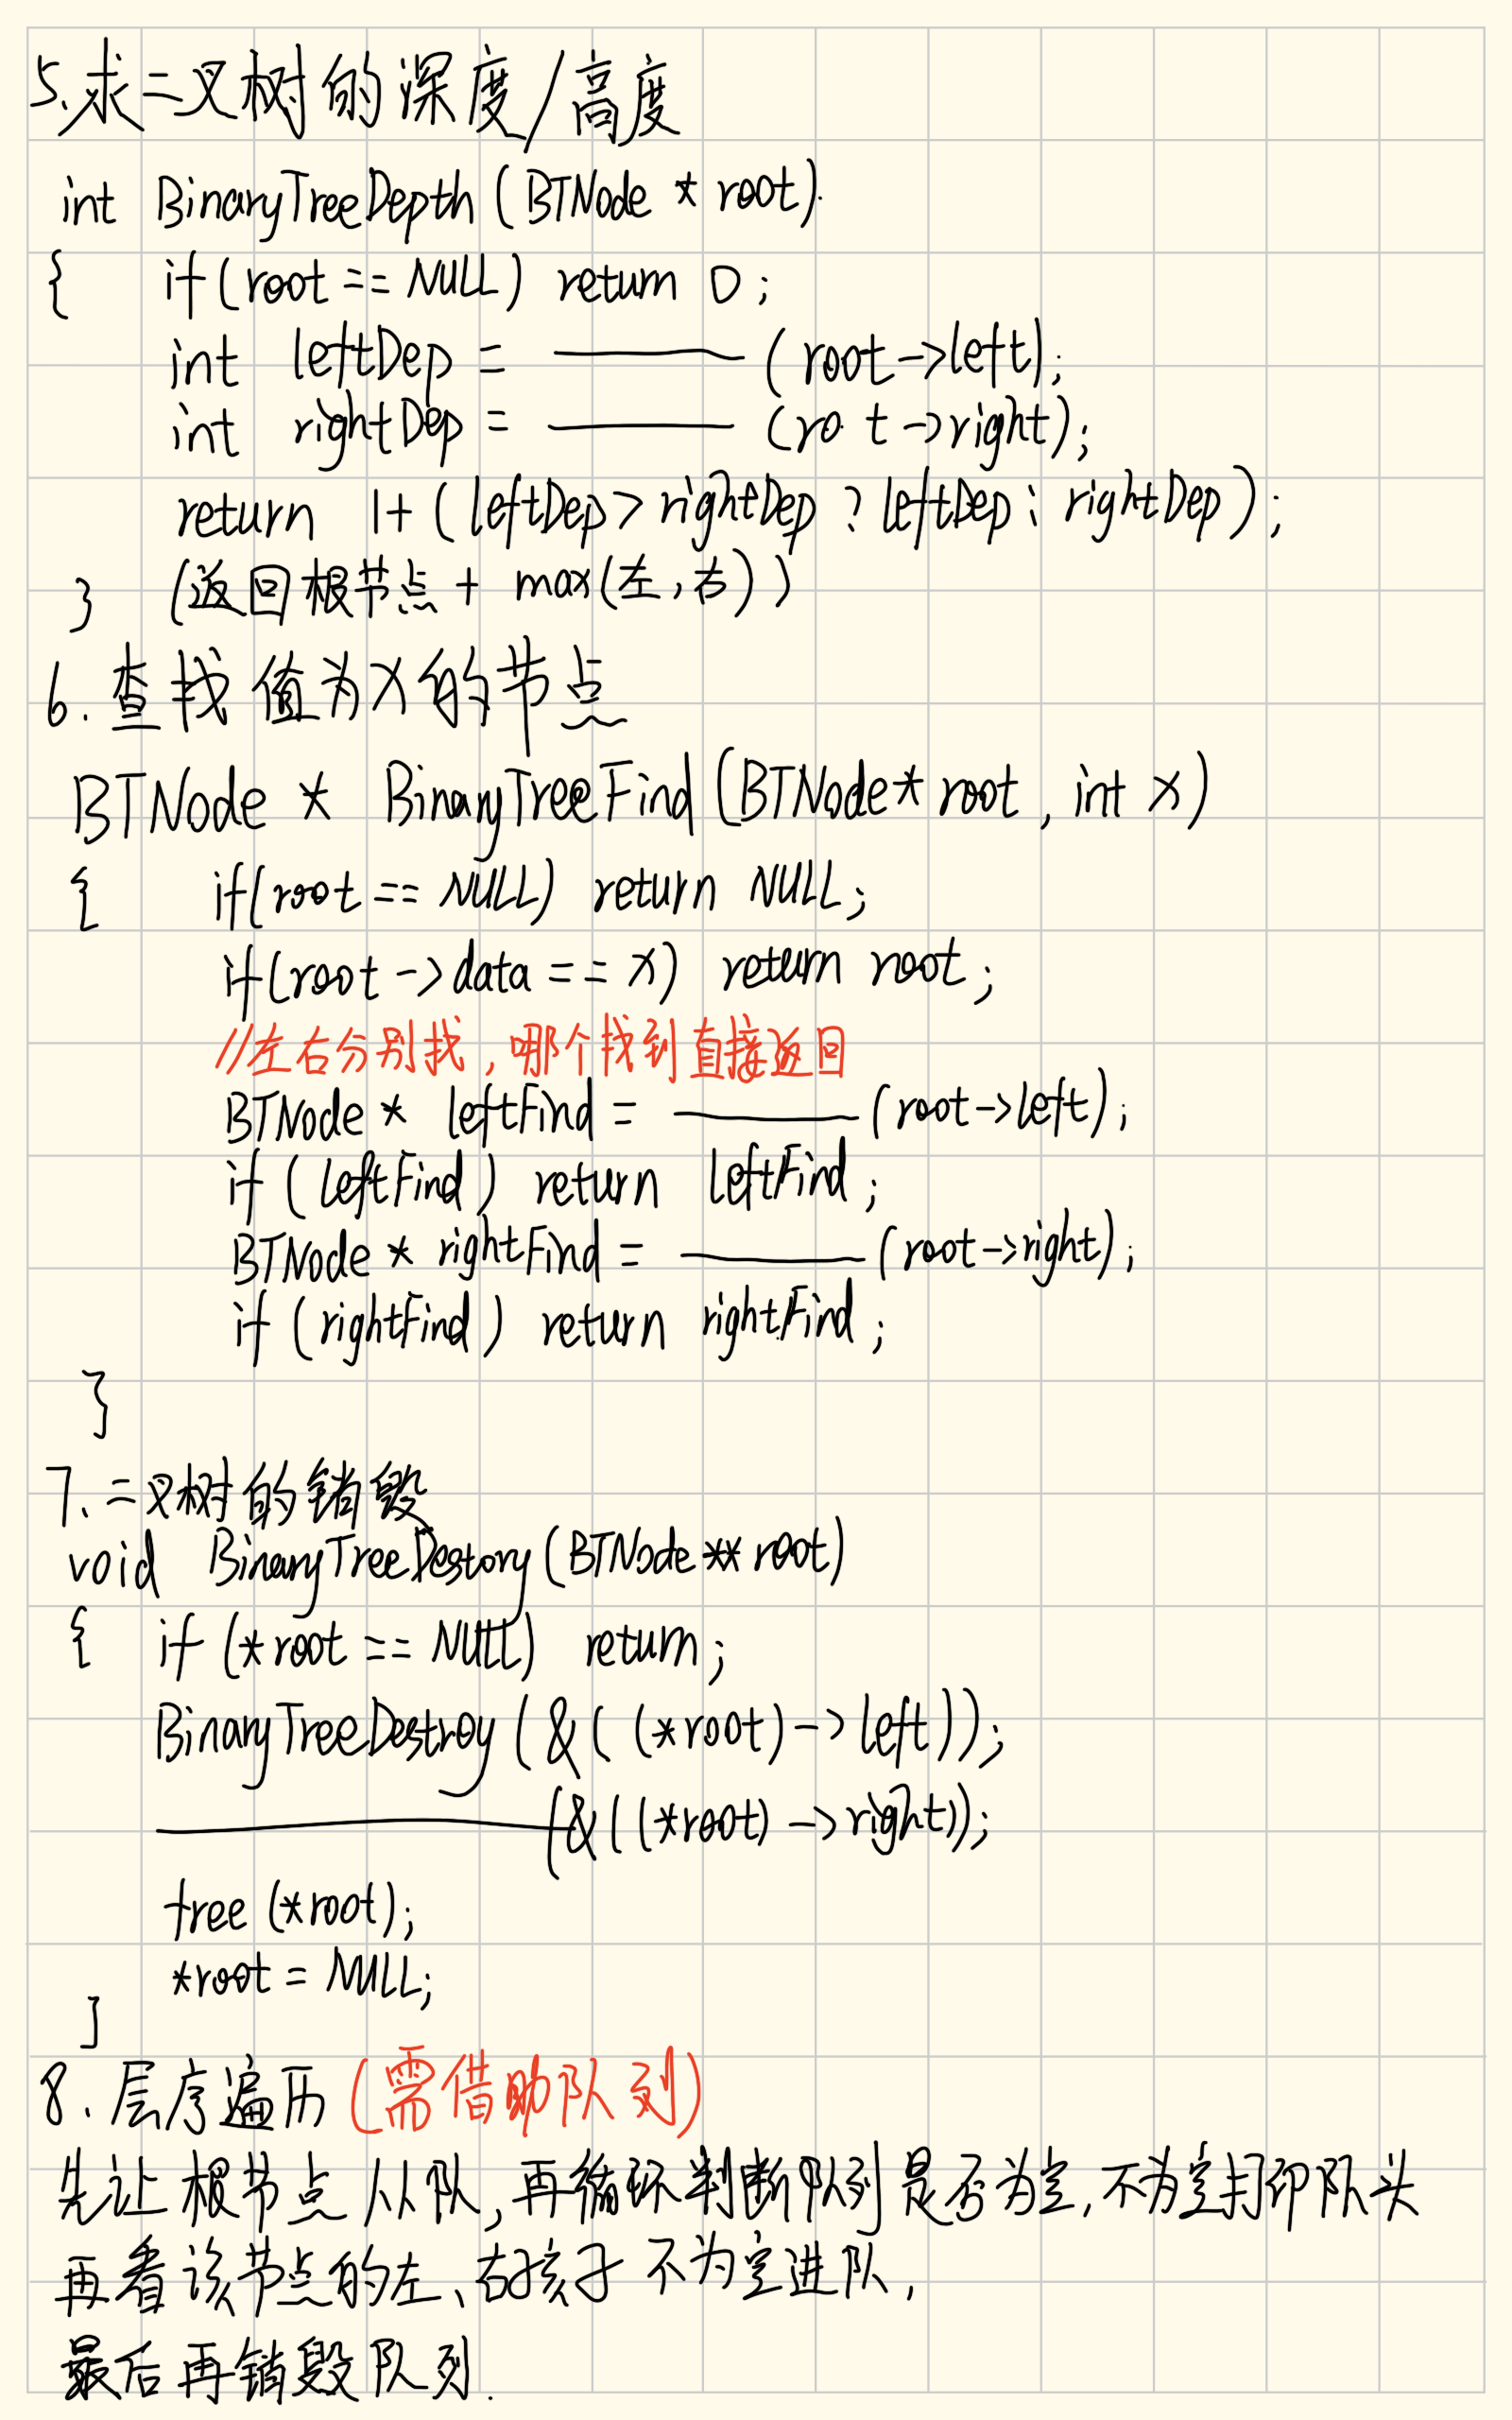 5.求二叉树的深度/高度
int BinaryTreeDepth (BTNode * root)
{ if (root == NULL) return 0;
int leftDep = ——— (root->left);
int rightDep = ——— (ro t->right);
return 1+ (leftDep > rightDep ? leftDep : rightDep);
} (返回根节点 + max(左,右))
6.查找值为X的节点
BTNode * BinaryTreeFind (BTNode* root, int x)
{ if(root == NULL) return NULL;
if(root ->data == x) return root;
//左右分别找,哪个找到直接返回
BTNode * leftFind = ——— (root->left);
if (leftFind) return leftFind;
BTNode * rightFind = ——— (root->right);
if (rightFind) return rightFind;
}
7.二叉树的销毁
void BinaryTreeDestory (BTNode ** root)
{ if (*root == NULL) return;
BinaryTreeDestroy (&((*root)->left));
——— (&((*root)->right));
free (*root);
*root = NULL;
}
8.层序遍历(需借助队列)
先让根节点从队,再循环判断队列是否为空,不为空打印队头
再看该节点的左、右孩子不为空进队,
最后再销毁队列.